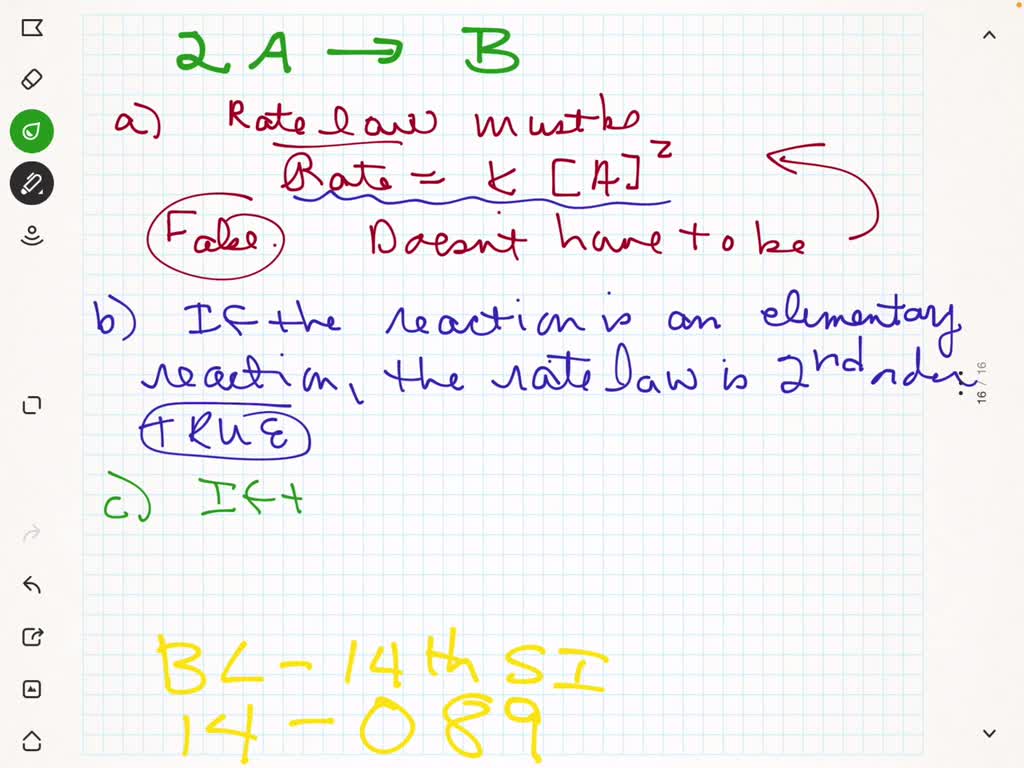 2 A → B
a) Rate law must be
Rate = k [A]²
False. Doesn't have to be
b) If the reaction is an elementary
reaction, the rate law is 2nd order
TRUE
c) If t
16 / 16
BL - 14th SI
14 - 089